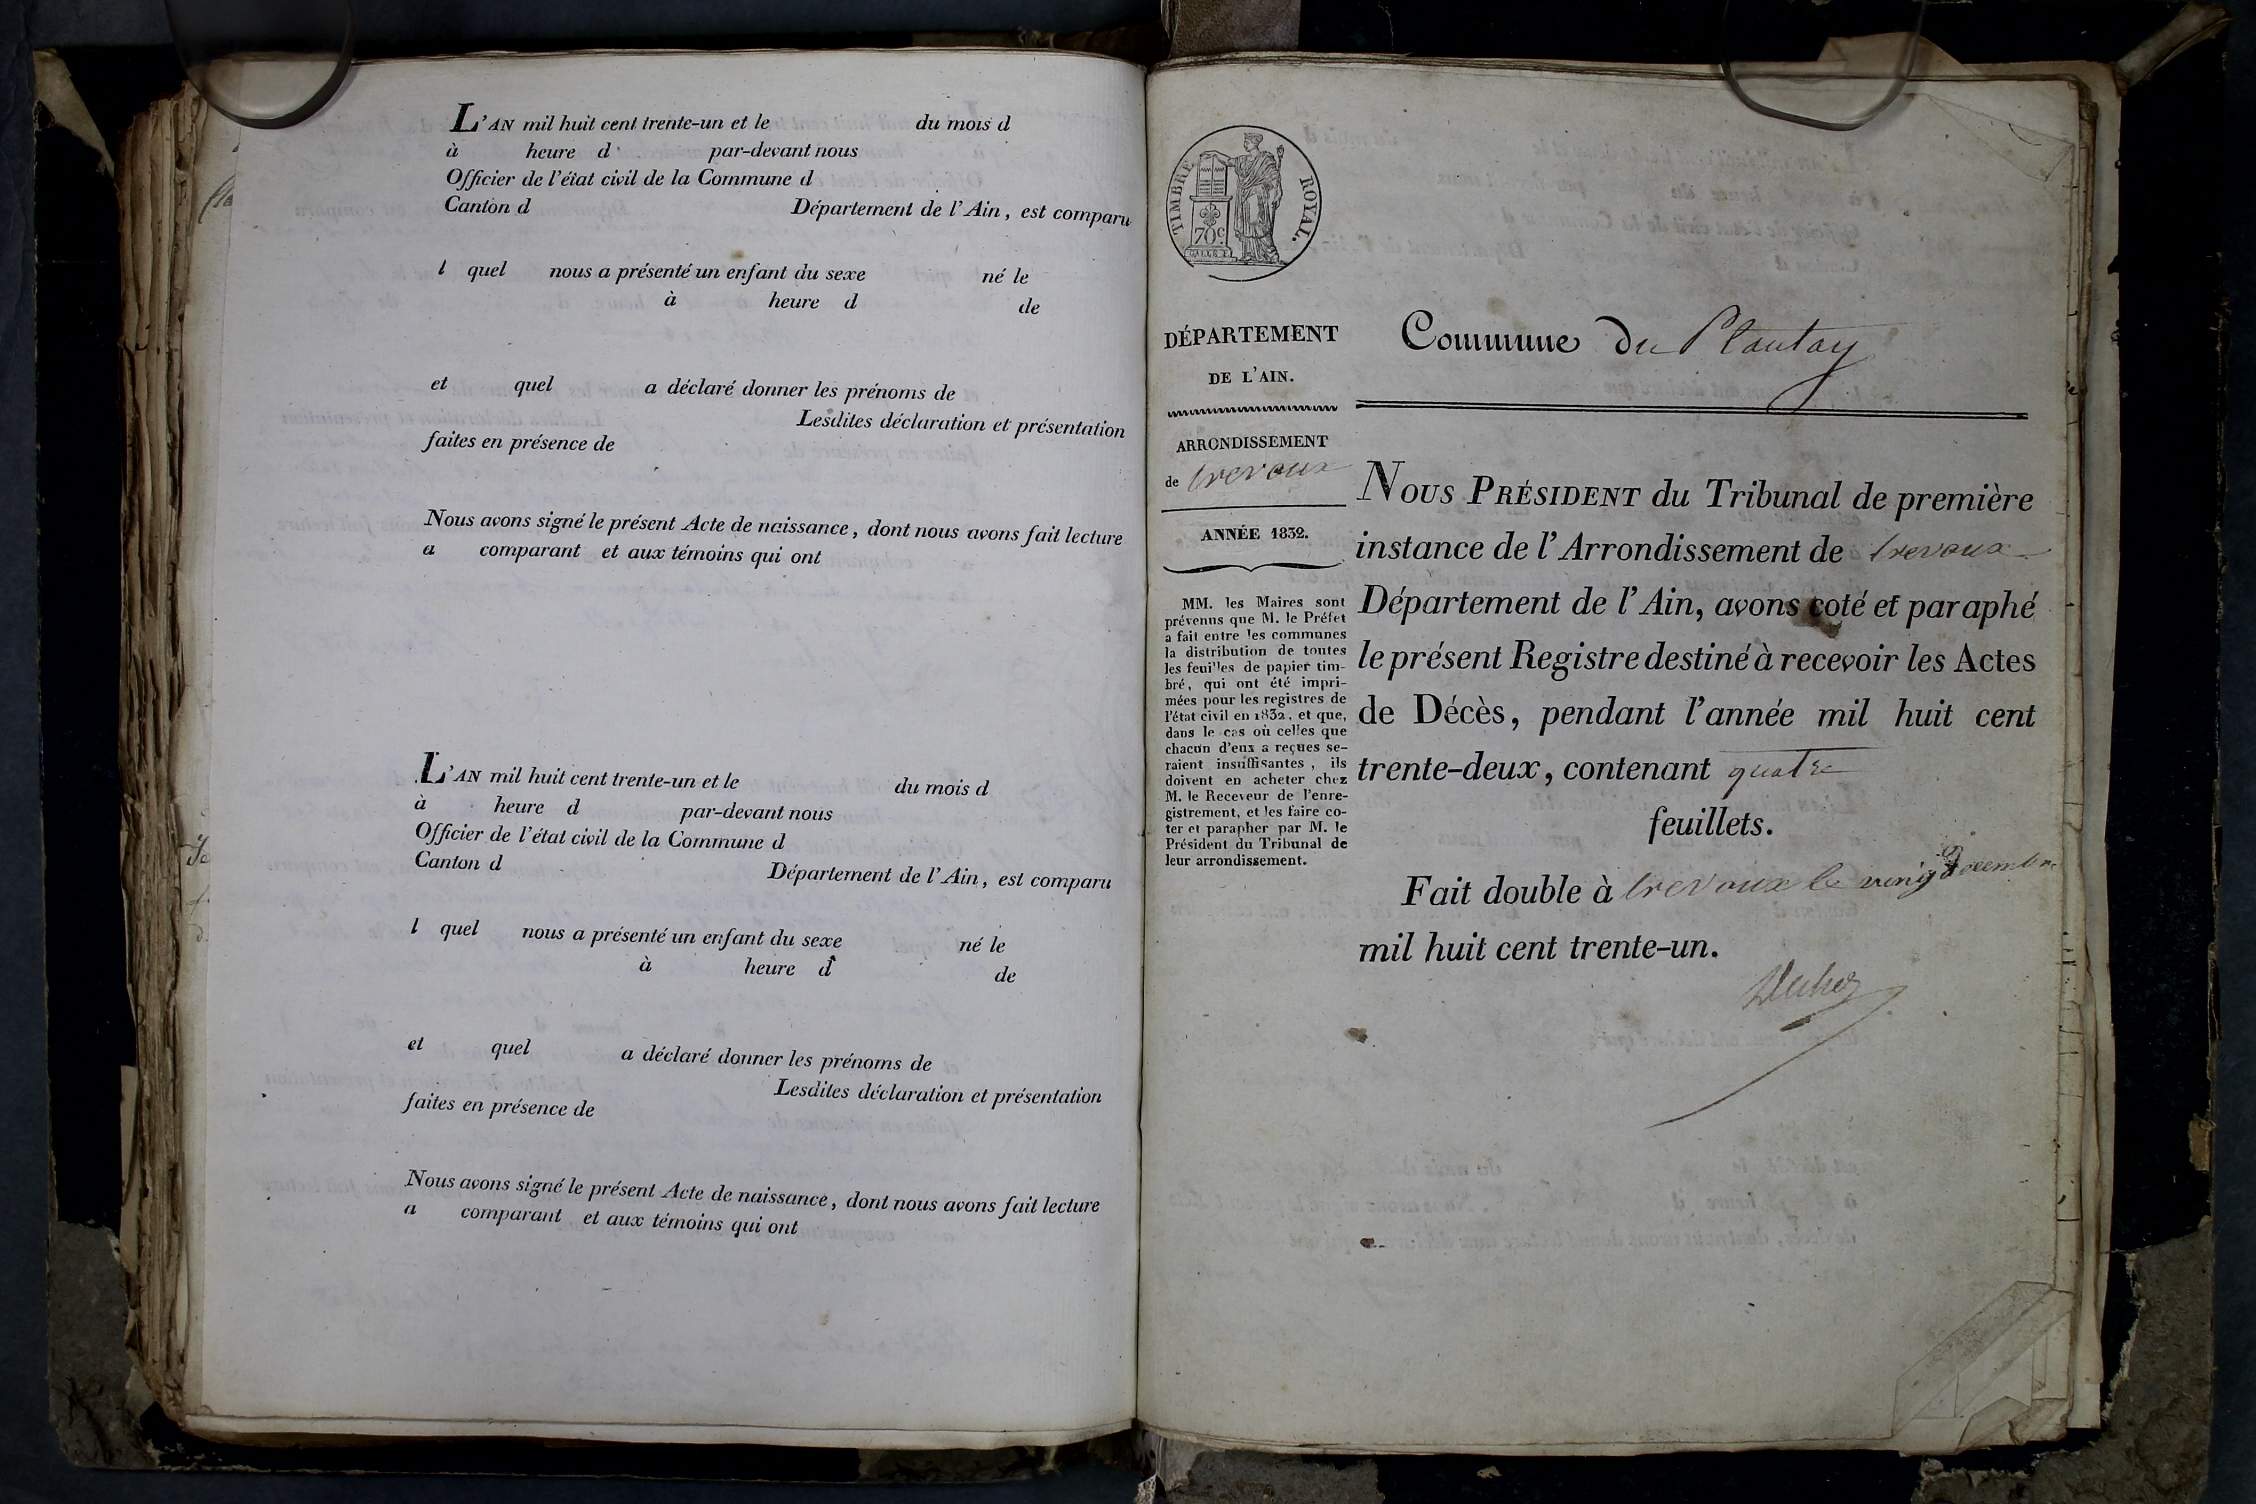 L'AN mil huit cent trente-un et le du mois d
à heure d par-devant nous
Officier de l'état civil de la Commune d
Canton d Département de l'Ain, est comparu
l quel nous a présenté un enfant du sexe né le
à heure d de
et quel a déclaré donner les prénoms de
Lesdites déclaration et présentation
faites en présence de
Nous avons signé le présent Acte de naissance, dont nous avons fait lecture
a comparant et aux témoins qui ont
L'AN mil huit cent trente-un et le du mois d
à heure d par-devant nous
Officier de l'état civil de la Commune d
Canton d Département de l'Ain, est comparu
l quel nous a présenté un enfant du sexe né le
à heure d de
et quel a déclaré donner les prénoms de
Lesdites déclaration et présentation
faites en présence de
Nous avons signé le présent Acte de naissance, dont nous avons fait lecture
a comparant et aux témoins qui ont
TIMBRE ROYAL.
70c
DÉPARTEMENT
DE L'AIN.
ARRONDISSEMENT
de trevoux
ANNÉE 1832.
MM. les Maires sont
prévenus que M. le Préfet
a fait entre les communes
la distribution de toutes
les feuilles de papier tim-
bré, qui ont été impri-
mées pour les registres de
l'état civil en 1832, et que,
dans le cas où celles que
chacun d'eux a reçues se-
raient insuffisantes, ils
doivent en acheter chez
M. le Receveur de l'enre-
gistrement, et les faire co-
ter et parapher par M. le
Président du Tribunal de
leur arrondissement.
Commune du Plantay
NOUS PRÉSIDENT du Tribunal de première
instance de l'Arrondissement de trevoux
Département de l'Ain, avons coté et paraphé
le présent Registre destiné à recevoir les Actes
de Décès, pendant l'année mil huit cent
trente-deux, contenant quatre
feuillets.
Fait double à trevoux le vingt Decembre
mil huit cent trente-un.